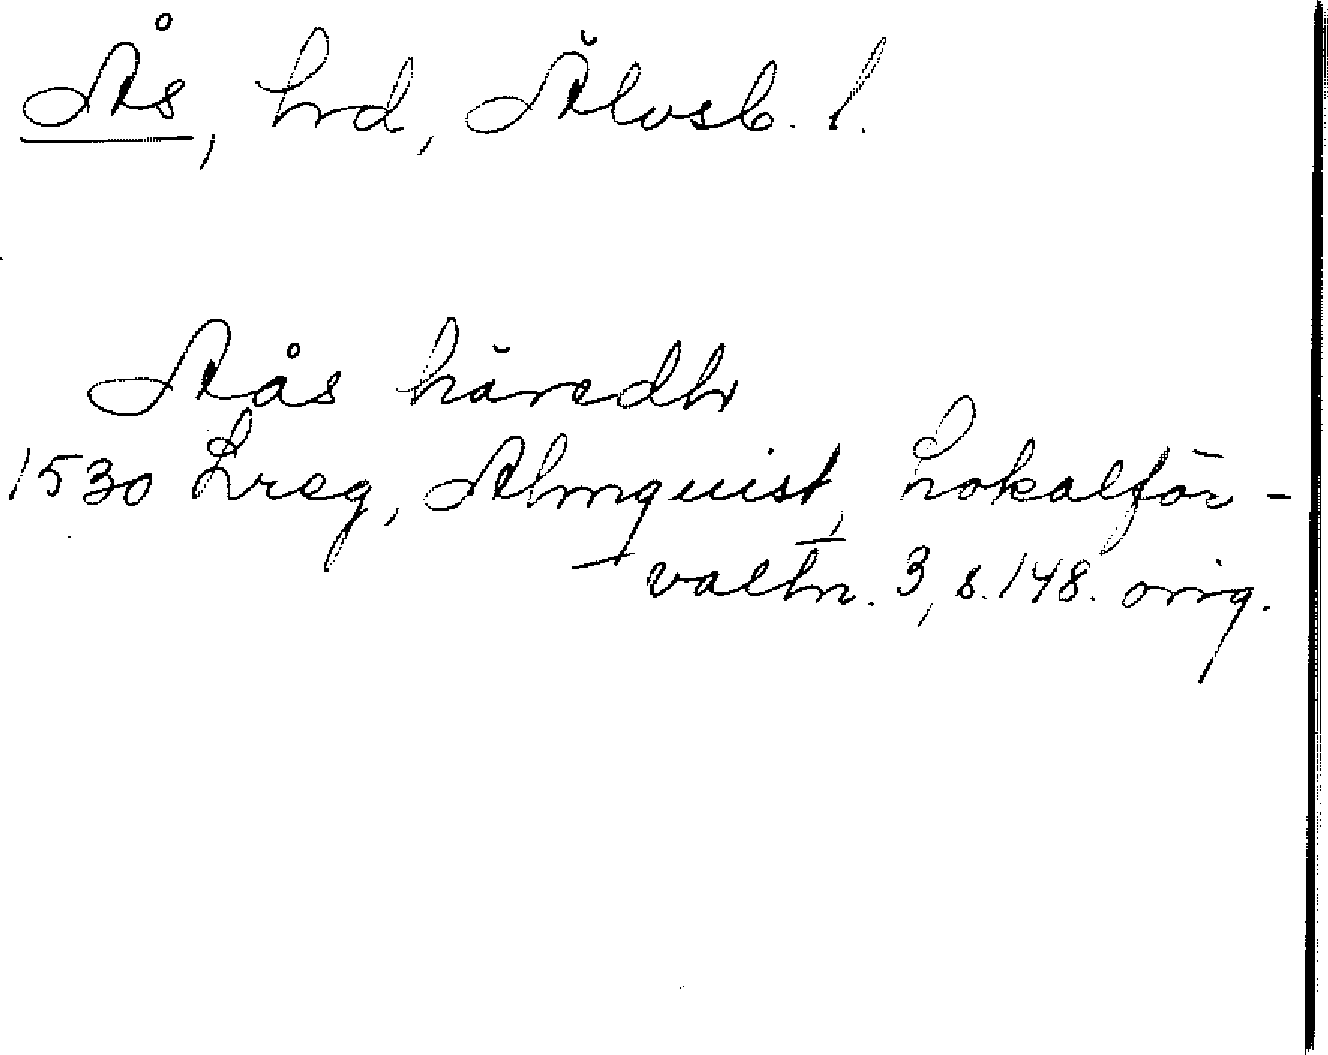 Ås, hrd, Älvsb. l.
Aås häredh
1530 Lreg, Almquist, Lokalför-
valtn. 3, s. 148. orig.